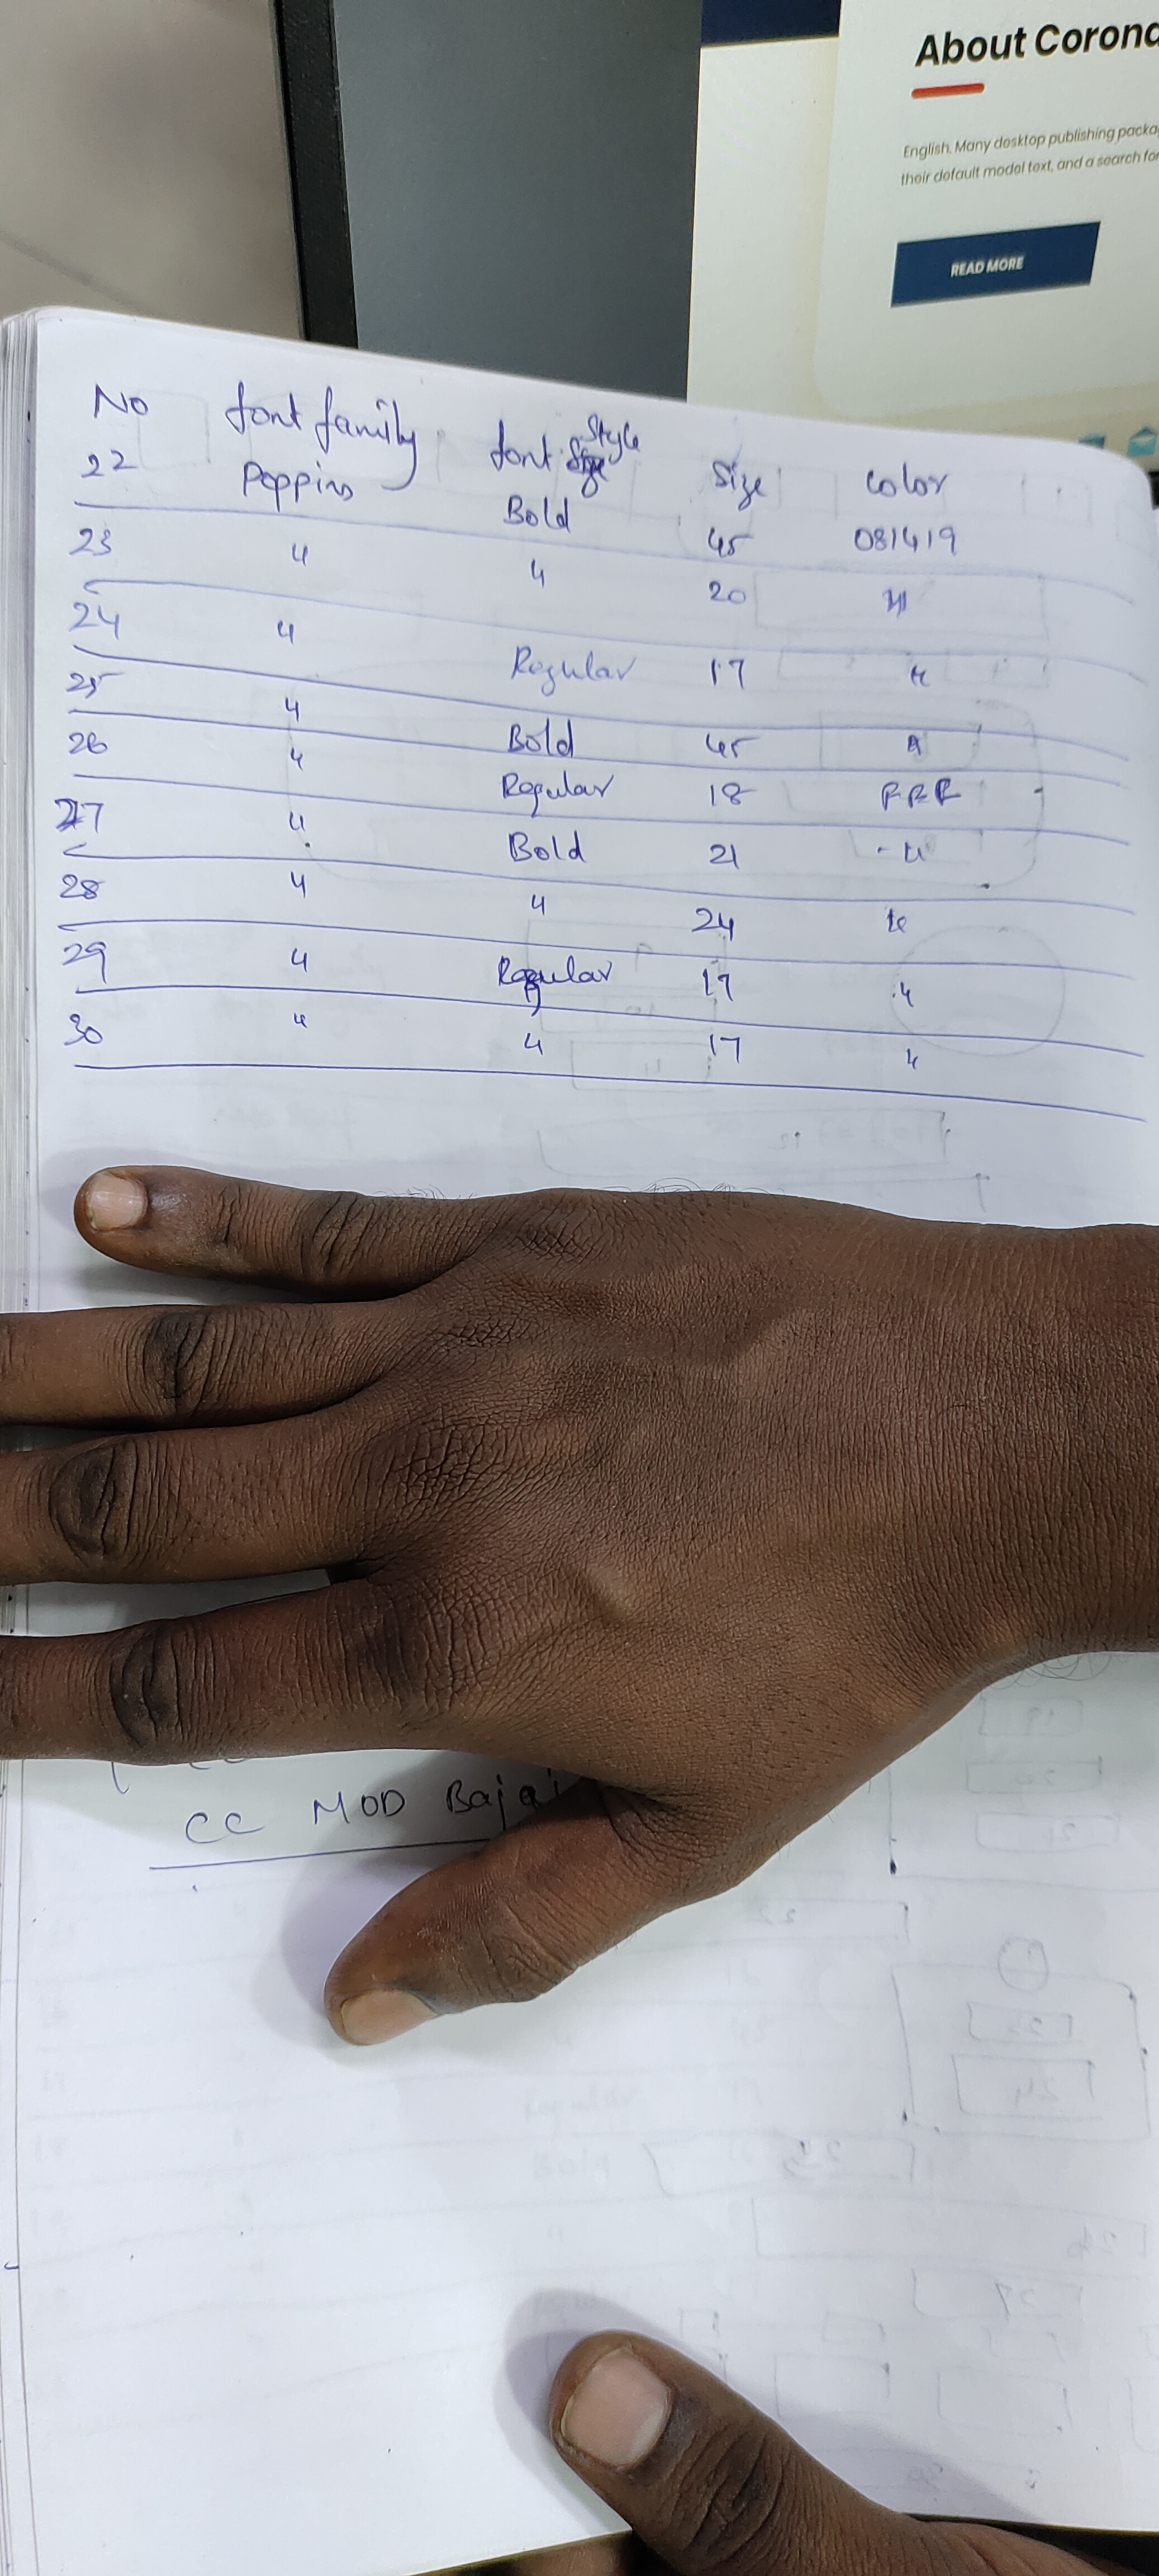 About Corona
English. Many desktop publishing packa
their default model text, and a search for
READ MORE
No font family font Style Size Color
22 Poppins Bold 45 081419
23 " " 20 "
24 " Regular 17 "
25 " Bold 45 "
26 " Regular 18 FFF
27 " Bold 21 "
28 " " 24 "
29 " Regular 17 "
30 " " 17 "
CC MOD Bajaj